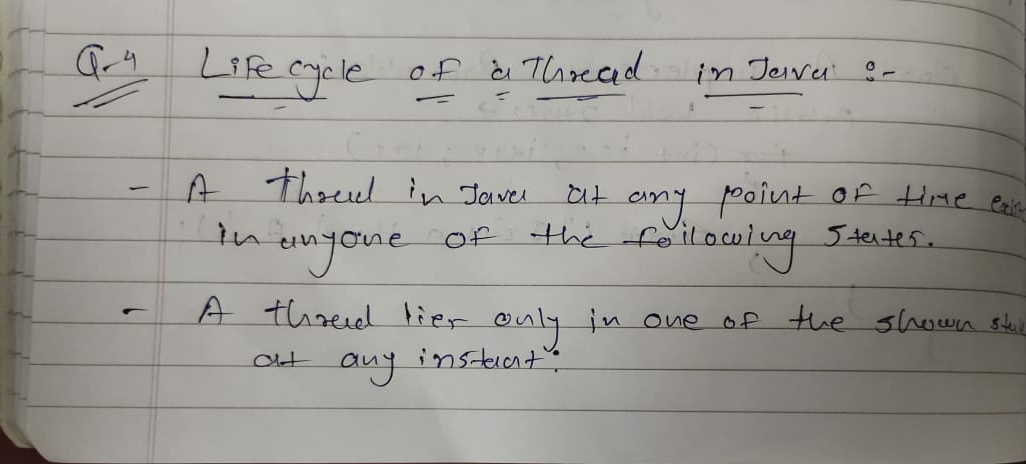 Q-4 Life cycle of a Thread in Java :-
- A thread in Java at any point of time
in anyone of the following states.
- A thread lies only in one of the shown
at any instant: